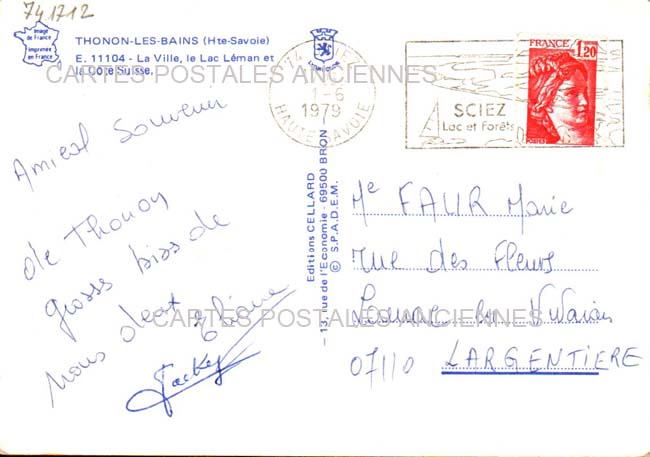 741712
Image
de France
Imprimée
en France
THONON-LES-BAINS (Hte-Savoie)
E. 11104 - La Ville, le Lac Léman et
la Côte Suisse.
CARTES POSTALES ANCIENNES
LYON
74 SCIEZ
1-6
1979
HAUTE SAVOIE
SCIEZ
Lac et Forêts
FRANCE 1,20
POSTES
Amical Souvenir
de Thonon
gross biss de
nous deux
Jackey
Editions CELLARD
- 13, rue de l'Economie - 69500 BRON -
© S.P.A.D.E.M.
Me FAUR Marie
rue des Fleurs
07110 LARGENTIERE
CARTES POSTALES ANCIENNES